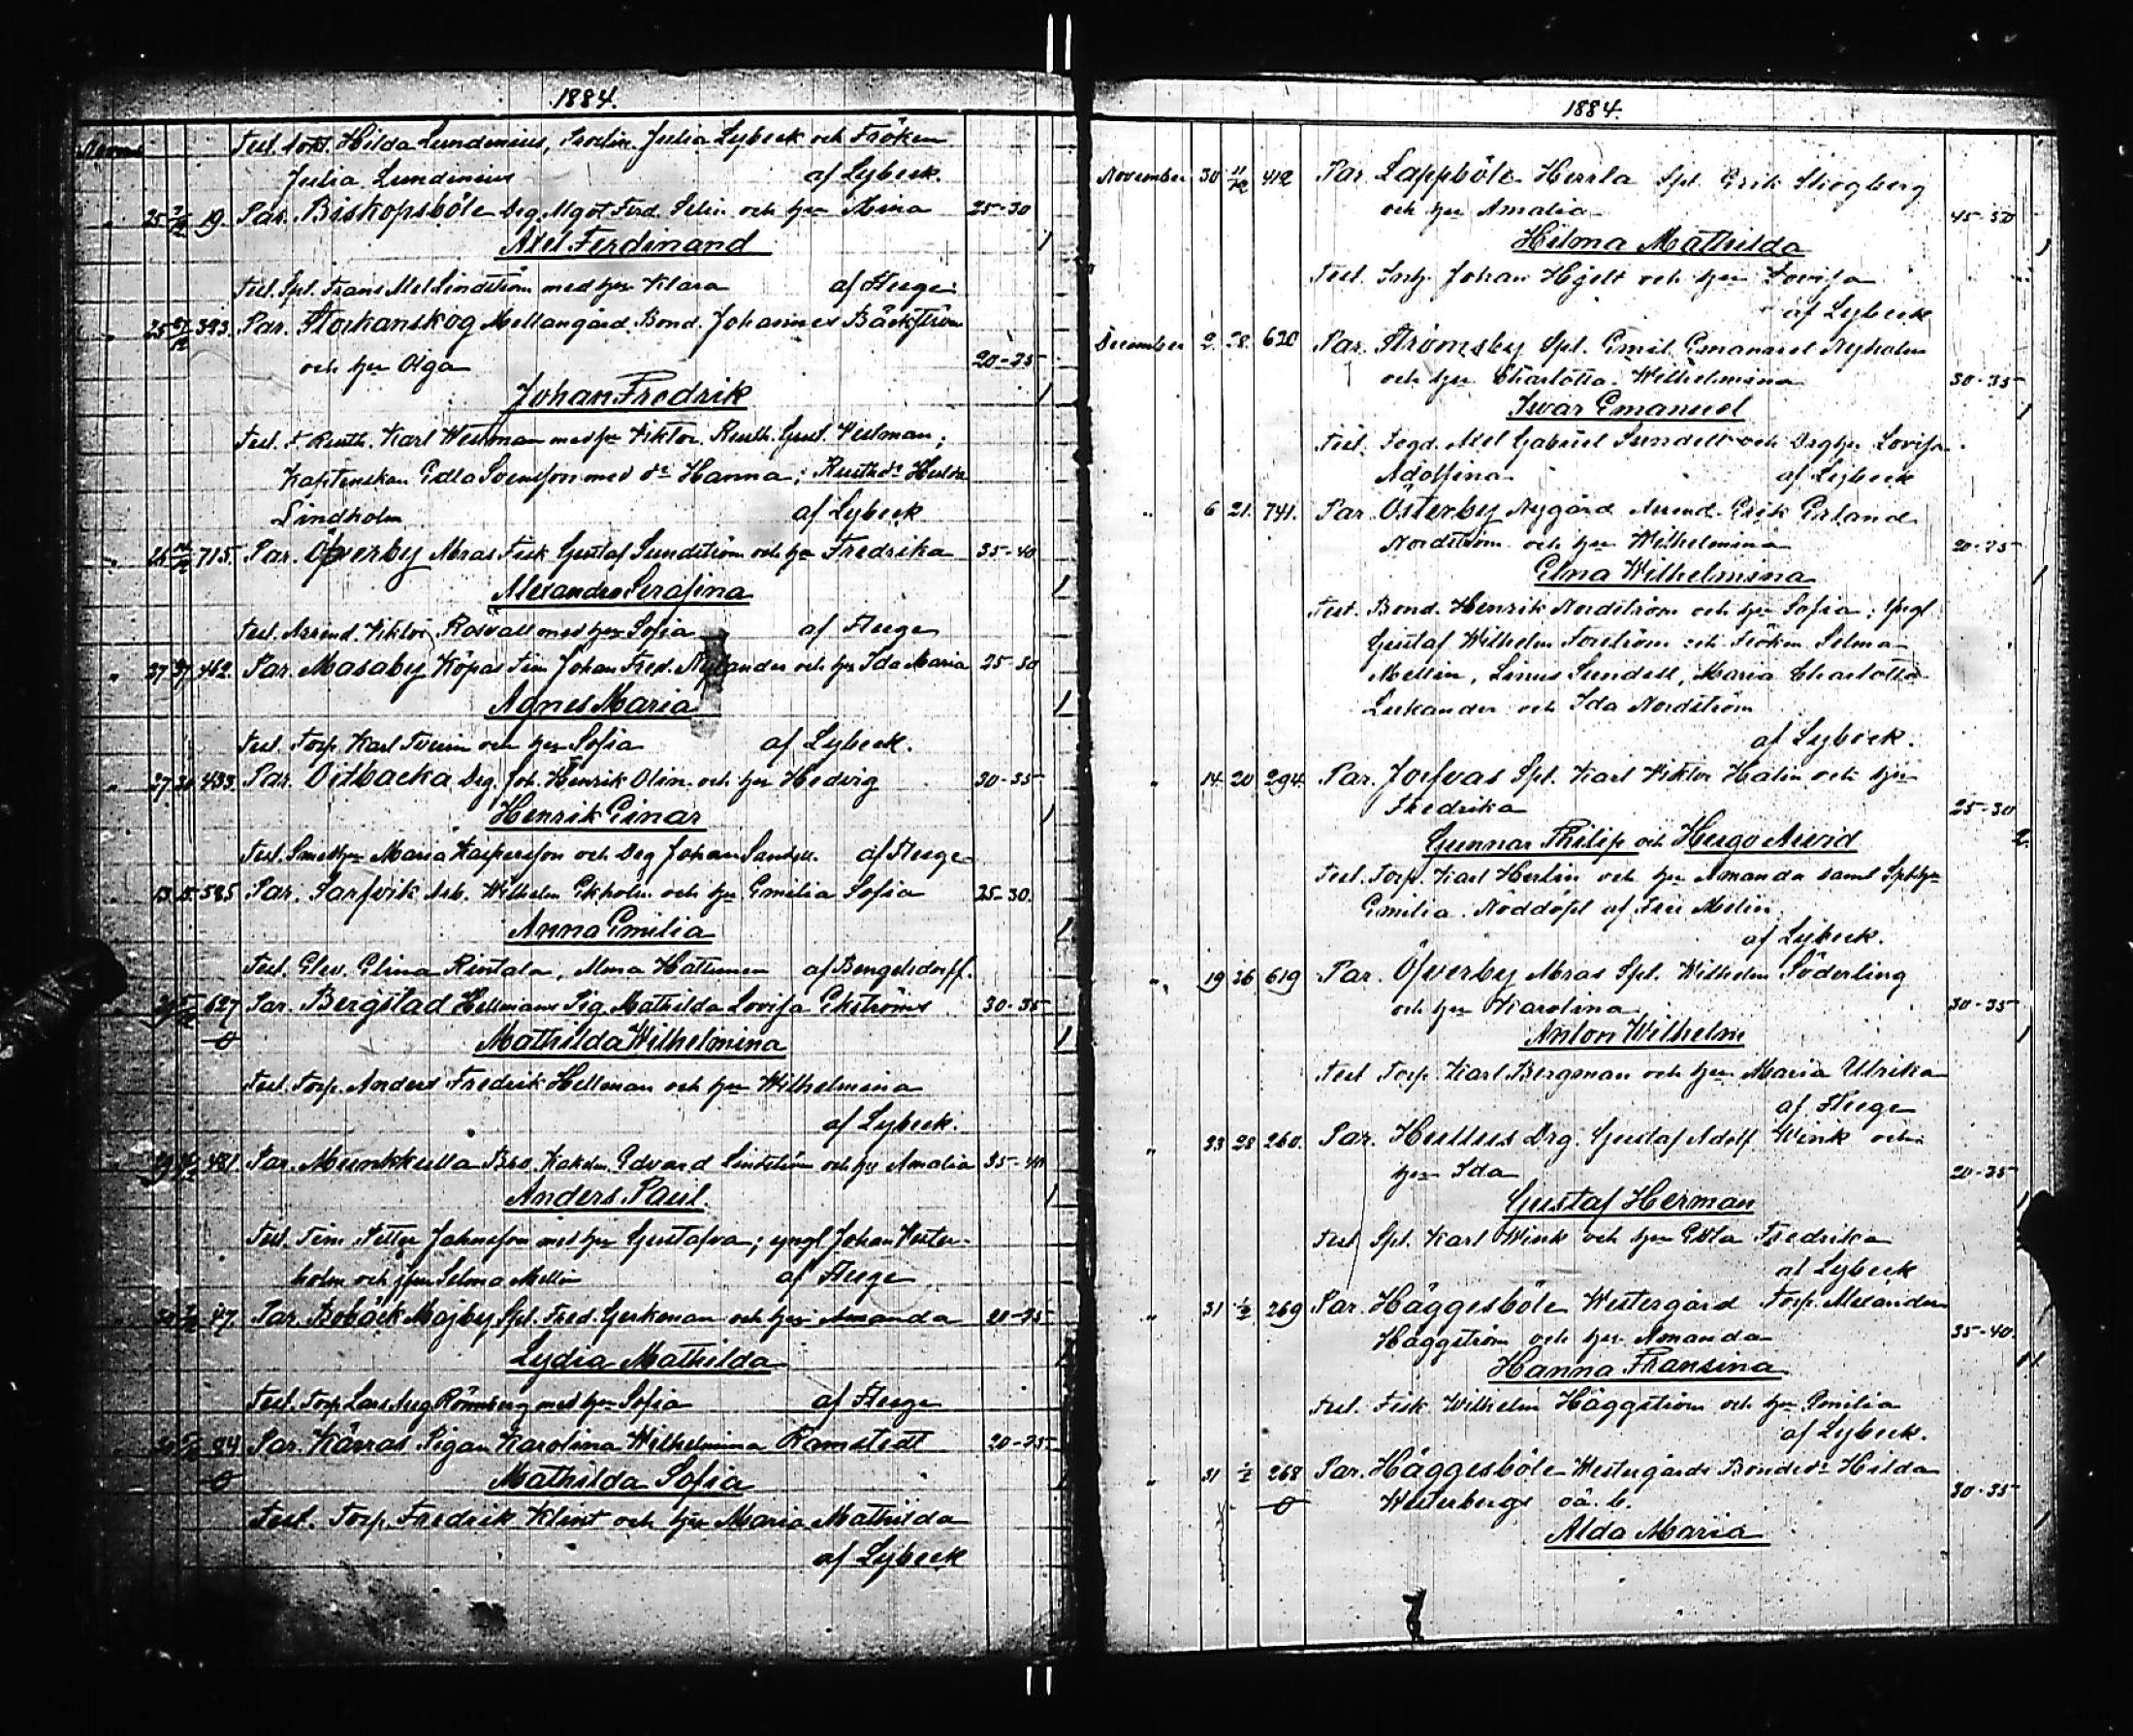 1884.
Test. Dokt. Hilda Lundenius, Julia Lybeck och Fröken
Julia Lundenius af Lybeck.
" 25 19. Par. Biskopsböle Drg. Ferd. och hu Mina 25-30
Axel Ferdinand 1
Test. Spl. Frans Lindström med hu Klara af Fleege
" 25 393. Par. Storkanskog Mellangård Bond. Johannes Bäckström
och hu Olga 20-25
Johan Fredrik 1
Test. Karl Westman med Viktor, Rusth. Gust. Westman;
Kaptenskan Edla Svensson med Hanna; Hulda
Lindholm af Lybeck
" 26 715. Par. Öfverby Abras Fisk Gustaf Sundström och hu Fredrika 35-40
Alexandra Serafina 1
Test. Arrend. Viktor med hu Sofia af Fleege
" 27 462. Par. Masaby Köpas Tim Johan Fred. Nylander och hu Ida Maria 25-30
Agnes Maria 1
Test. Torp. Karl och hu Sofia af Lybeck.
" 27 30 433. Par. Oitbacka Drg. Joh. Henrik Olin och hu Hedvig 30-35
Henrik Einar 1
Test. Maria Kaspersson och Drg Johan af Fleege
13 15 585 Par. Sarfvik Arb. Wilhelm Ekholm och hu Emilia Sofia 25-30.
Anna Emilia 1
Test. Elev. Elina Rintala, Alma Hattunen af Bengelsdorff.
627 Par. Bergstad Hellmans Pig. Mathilda Lovisa Ekströms 30-35
Mathilda Wilhelmina 1
Test. Torp. Anders Fredrik Hellman och hu Wilhelmina
af Lybeck.
481 Par. Munkkulla Edvard Lindström och hu Amalia 35-40
Anders Paul 1
Test. Tim. Petter Johnsson med hu Gustafva; yngl Johan Wester-
holm och jfrun Selma Mellin af Fleege
47. Par. Bobäck Majby Spl. Fred. Gerkman och hu Amanda 20-25
Lydia Mathilda 1
Test. Torp Lars Aug Rönnberg med hu Sofia af Fleege
84 Par. Kärras Pigan Karolina Wilhelmina Ramstedt 20-25
Mathilda Sofia 1
Test. Torp. Fredrik Klint och hu Maria Mathilda
af Lybeck
1884.
November 30 11/12 412 Par. Lappböle Herrla Spl. Erik Skogberg
och hu Amalia 45-50
Hilma Mathilda 1
Test. Inh. Johan Hjelt och hu Lovisa
af Lybeck
December 2. 28. 620 Par. Strömsby Spl. Emil Emanuel Nyholm
och hu Charlotta Wilhelmina 30-35
Ivar Emanuel 1
Test. Axel Gabriel Sundell och Drghu Lovisa
Adolfina af Lybeck
" 6 21. 741. Par. Österby Nygård Arrend. Erik Erland
Nordström och hu Wilhelmina 20-25
Elna Wilhelmina 1
Test. Bond. Henrik Nordström och hu Sofia; Yngl
Gustaf Wilhelm Forström och Fröken Selma
Mellin, Linus Sundell, Maria Charlotta
Lerkander och Ida Nordström
af Lybeck.
" 14 20 294. Par. Jorfvas Spl. Karl Viktor Halin och hu
Fredrika 25-30
Gunnar Philip och Hugo Arvid 2.
Test. Torp. Karl Herlin och hu Amanda samt Splhu
Emilia. Nöddöpt af Fru Melin
af Lybeck.
" 19 26 619 Par. Öfverby Abras Spl. Wilhelm Söderling
och hu Karolina 30-35
Anton Wilhelm 1
Test Torp. Karl Bergman och hu Maria Ulrika
af Fleege
" 23 28 260. Par. Hullus Drg. Gustaf Adolf Wink och
hu Ida 20-25
Gustaf Herman 1
Test Spl. Karl Wink och hu Edla Fredrika
af Lybeck
" 31 1/2 269 Par. Häggesböle Westergård Torp. Alexander
Häggström och hu Amanda 35-40.
Hanna Fransina 1
Test. Fisk. Wilhelm Häggström och hu Emilia
af Lybeck.
" 31 1/2 268 Par. Häggesböle Westergårds Bondedr Hilda
Westerbergs oä. b. 30-35
Alda Maria 1